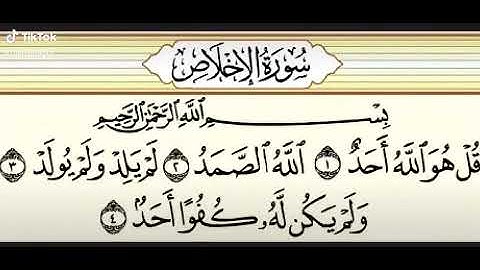 TikTok
سُورَةُ الإِخْلَاصِ
بِسْمِ اللَّهِ الرَّحْمَٰنِ الرَّحِيمِ
قُلْ هُوَ اللَّهُ أَحَدٌ ١ اللَّهُ الصَّمَدُ ٢ لَمْ يَلِدْ وَلَمْ يُولَدْ ٣
وَلَمْ يَكُن لَّهُۥ كُفُوًا أَحَدٌۢ ٤